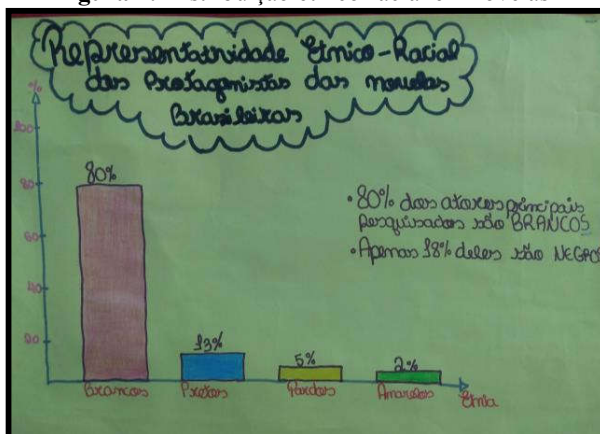 Representatividade Étnico-Racial
dos Protagonistas das novelas
Brasileiras
%
100
80
60
40
20
80%
13%
5%
2%
Brancos
Pretos
Pardos
Amarelos
Etnia
• 80% dos atores principais
pesquisados são BRANCOS
• Apenas 18% deles são NEGROS